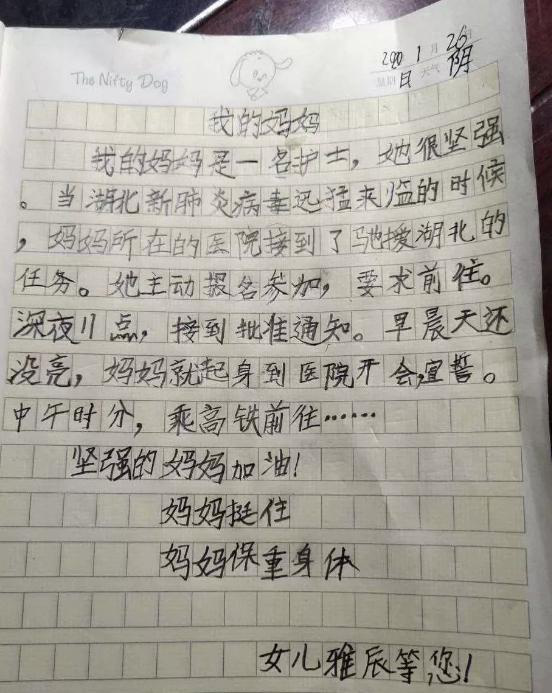 The Nifty Dog
2020 1月 26日
星期日 天气 阴
我的妈妈
我的妈妈是一名护士，她很坚强
。当湖北新肺炎病毒迅猛来临的时候
，妈妈所在的医院接到了驰援湖北的
任务。她主动报名参加，要求前往。
深夜11点，接到批准通知。早晨天还
没亮，妈妈就起身到医院开会，宣誓。
中午时分，乘高铁前往……
坚强的妈妈加油！
妈妈挺住
妈妈保重身体
女儿雅辰等您！